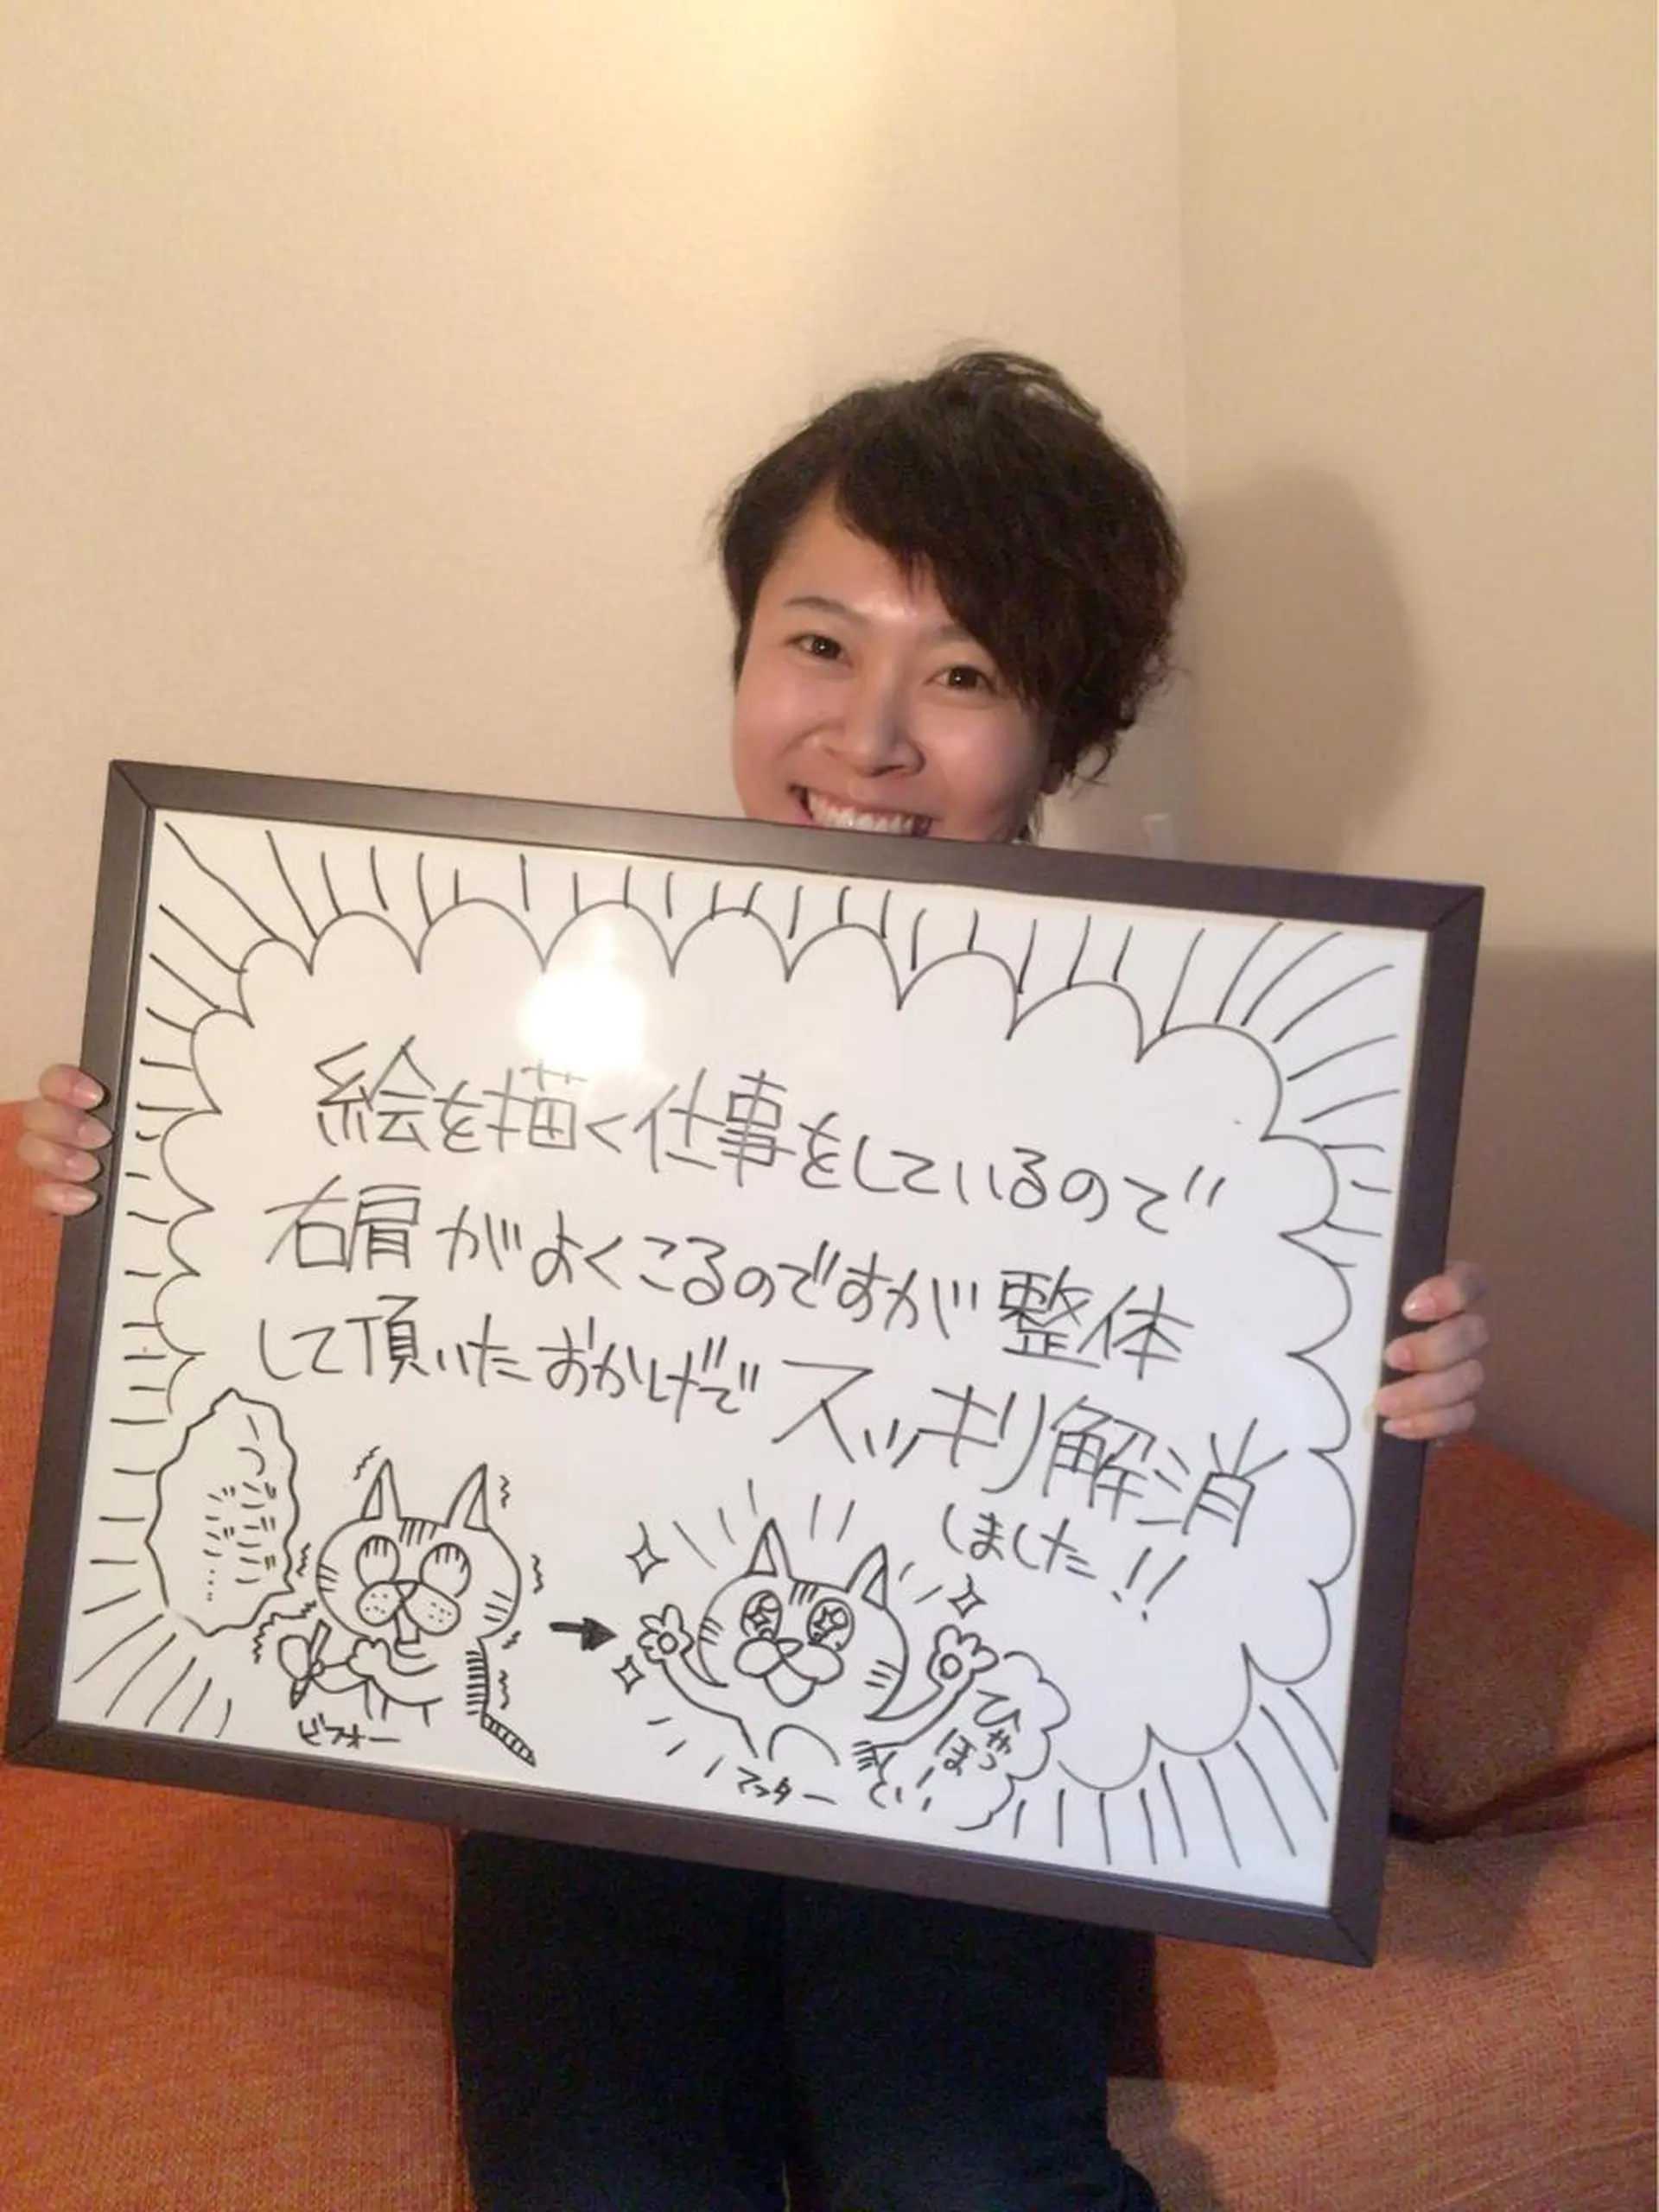 絵を描く仕事をしているので
右肩がよくこるのですが整体
して頂いたおかげでスッキリ解消
しました!!
ビフォー
アフター
ひゃっ
ほ